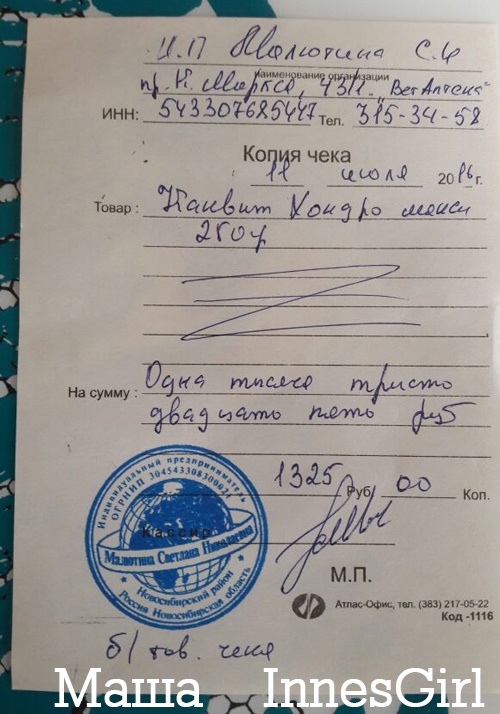 И.П Малютина С.Н
наименование организации
пр. К. Маркса, 43/1. "ВетАптека"
ИНН: 543307685447 Тел. 315-34-58
Копия чека
11 июля 2016г.
Товар: Канвит Хондро макси
250гр
На сумму: Одна тысяча триста
двадцать пять руб
1325 Руб. 00 Коп.
Кассир
М.П.
Индивидуальный предприниматель
ОГРНИП 304543308300025
Малютина Светлана Николаевна
Новосибирский район
Россия Новосибирская область
Атлас-Офис, тел. (383) 217-05-22
Код -1116
б/ тов. чека
Маша InnesGirl